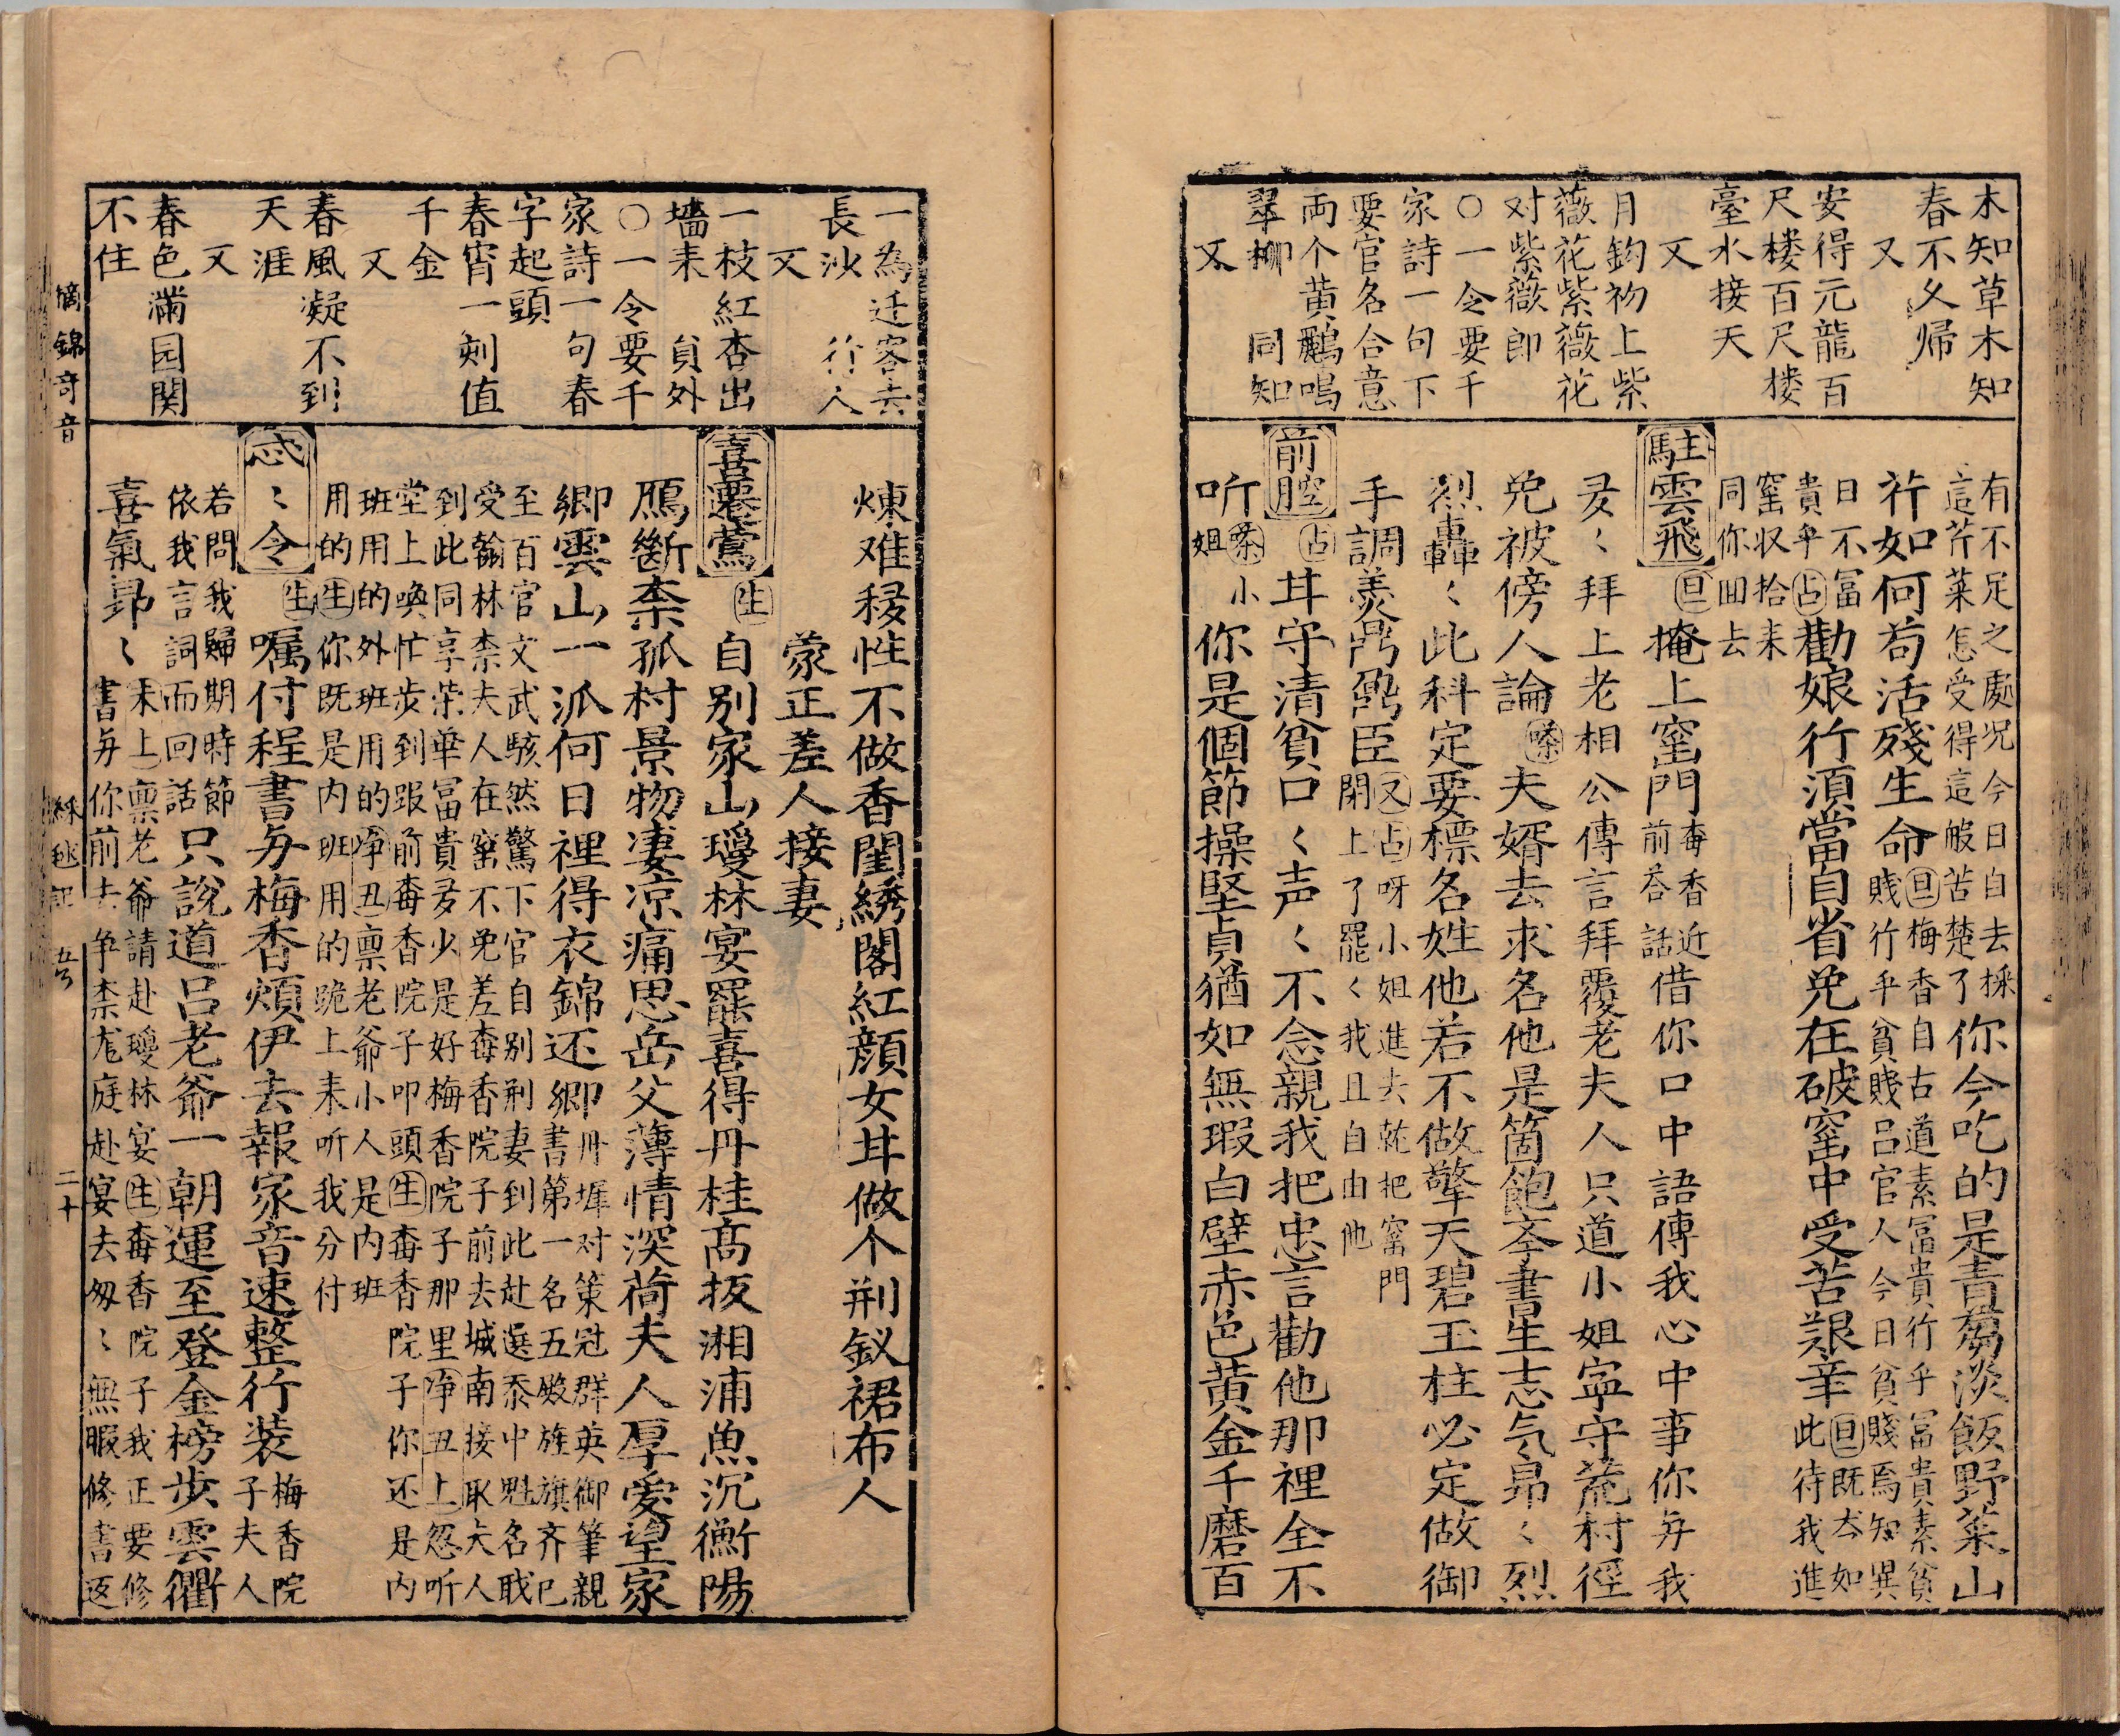 木知草木知
春不久帰
又
安得元龍百
尺楼百尺楼
臺水接天
又
月鈎初上紫
薇花紫薇花
对紫薇郎
〇一令要千
家詩一句下
要官名合意
両个黄鸝鳴
翠柳　同知
又
有不足之處况今日自去採
這芹菜怎受得這般苦楚了你今吃的是青蒭淡飯野菜山
荇如何苟活殘生命旦梅香自古道素冨貴行乎冨貴素貧
賤行乎貧賤吕官人今日貧賤焉知異
日不冨
貴乎占勸娘行須當自省免在破窑中受苦艱辛旦既夲如
此待我進
窑収拾来
同你回去
駐雲飛旦掩上窑門梅香近
前荅話借你口中語傳我心中事你与我
多〻拜上老相公傳言拜覆老夫人只道小姐寕守荒村徑
免被傍人論夆夫婿去求名他是箇飽斈書生志气昻〻烈
烈轟〻此科定要標名姓他若不做擎天碧玉柱必定做御
手調羹鼎鼐臣又占呀小姐進去就把窑門
閉上了罷〻我且自由他
前腔占甘守清貧口〻声〻不念親我把忠言勸他那裡全不
听夆小
姐你是個節操堅貞猶如無瑕白壁赤色黄金千磨百
一為迁客去
長沙　行人
又
一枝紅杏出
墻来　貟外
〇一令要千
家詩一句春
字起頭
春宵一刻值
千金
又
春風凝不到
天涯
又
春色滿园関
不住
煉难移性不做香閨綉閣紅顔女甘做个荆釵裙布人
蒙正差人接妻
喜遷鶯生自别家山瓊林宴罷喜得丹桂髙抜湘浦魚沉衡陽
鴈斷柰孤村景物凄凉痛思岳父薄情深荷夫人厚愛望家
鄉雲山一派何日裡得衣錦还鄉丹墀对策冠群英御筆親
書第一名五㫼旌旗齐已
至百官文武駭然驚下官自别荆妻到此赴選忝中魁名戝
受翰林柰夫人在窑不免差梅香院子前去城南接取夫人
到此同享荣華冨貴多少是好梅香院子那里净丑上忽听
堂上喚忙步到跟前梅香院子叩頭生梅香院子你还是内
班用的外班用的净丑禀老爺小人是内班
用的生你既是内班用的跪上来听我分付
忒〻令生囑付程書与梅香煩伊去報家音速整行装梅香院
子夫人
若問我歸期時節
依我言詞而回話只說道吕老爺一朝運至登金榜步雲衢
喜氣昻〻末上禀老爺請赴瓊林宴生梅香院子我正要修
書与你前去争柰龙庭赴宴去匆〻無暇修書返
摘錦奇音
綵毬記
五卷
二十